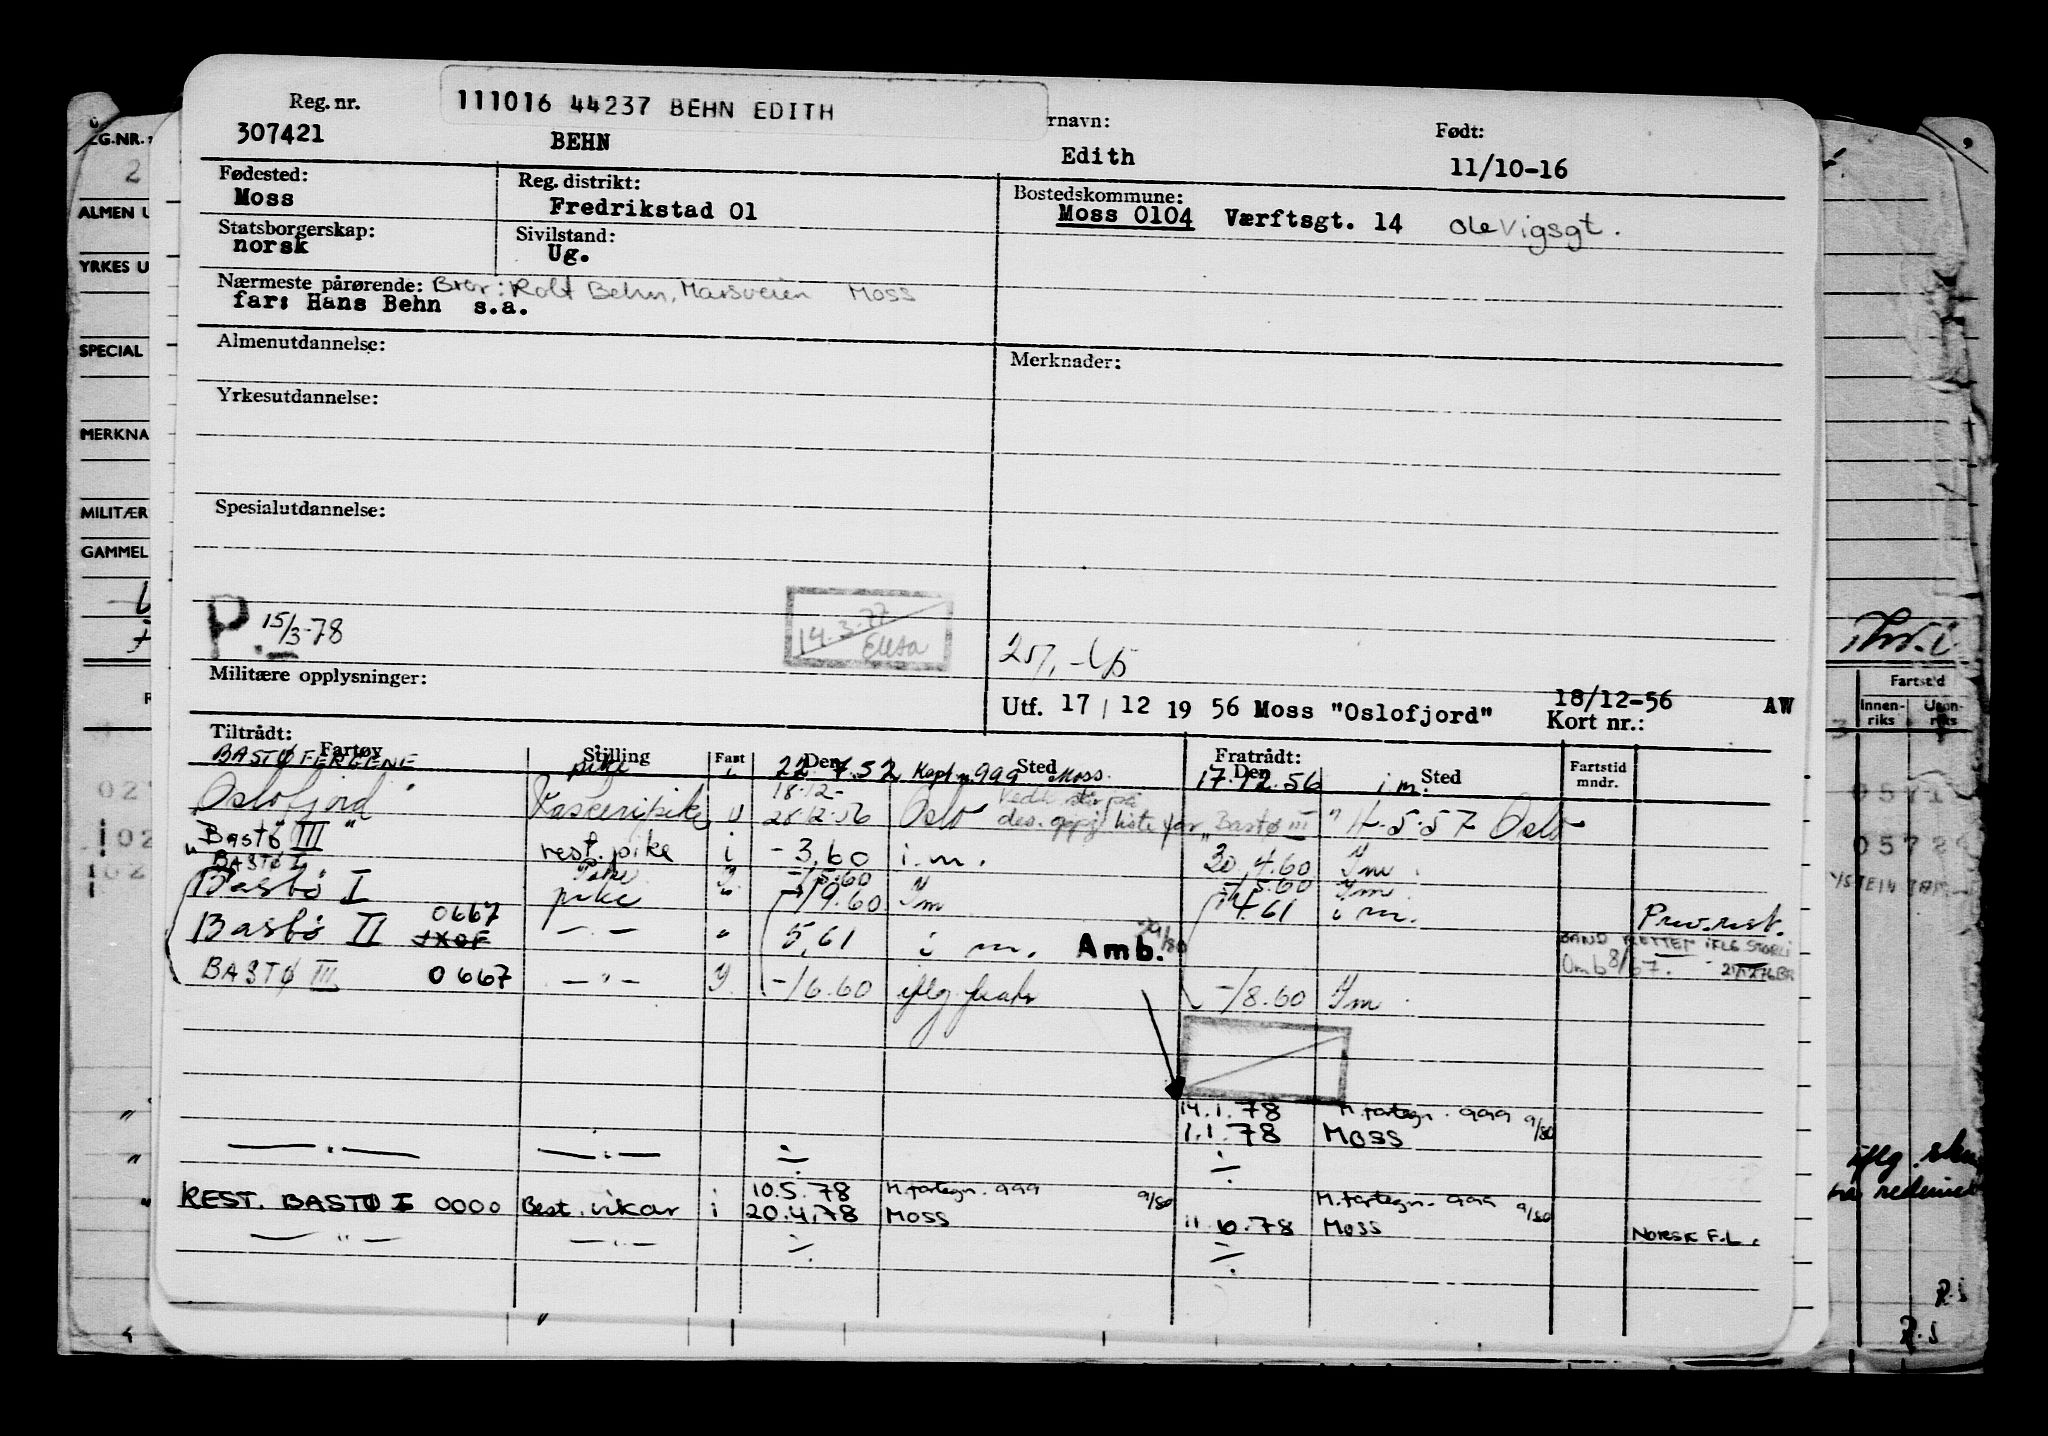 111016 44237 BEHN EDITH
Reg. nr. rnavn: Født:
307421 BEHN Edith 11/10-16
Fødested: Reg. distrikt: Bostedskommune:
Moss Fredrikstad 01 Moss 0104 Værftsgt. 14 Ole Vigsgt.
Statsborgerskap: Sivilstand:
norsk Ug.
Nærmeste pårørende: Bror: Rolf Behn, Marsveien Moss
far: Hans Behn s.a.
Almenutdannelse: Merknader:
Yrkesutdannelse:
Spesialutdannelse:
P. 15/3-78 14.3.77
Militære opplysninger:
Utf. 17/12 19 56 Moss "Oslofjord" 18/12-56 AW
Kort nr.:
Tiltrådt: Fratrådt:
Fartøy Stilling Fart Den Sted Den Sted Fartstid mndr.
BASTØ FERGENE pike i 22.7.52 999 Moss. 17.12.56 i.m.
18.12-
Oslofjord u 28.12.56 Oslo Bastø III 4.5.57 Oslo
"Bastø III" rest. pike i -3,60 i.m. 30.4.60 Im.
BASTØ I Pike -/5.60 -/5.60 Im
Bastø I pike " -/9.60 Im 4.61 i m.
Bastø II 0667 JXOF — " — " 5,61 i m. Amb. 9/80
BASTØ III 0667 — " — -/6.60 iflg. -/8.60 Im.
14.1.78 M.fartegn. 999 9/80
1.1.78 MOSS
— " — — " — ÷ ÷
10.5.78 M.fartegn. 999 9/80 M.fartegn. 999 9/80
REST. BASTØ I 0000 Best. vikar i 20.4.78 MOSS 11.6.78 MOSS NORSK F.L.
— " — — " — ÷ ÷
ALMEN U
YRKES U
SPECIAL
MERKNA
MILITÆR
GAMMEL
Fartstid
Innenriks
R.S
R.S